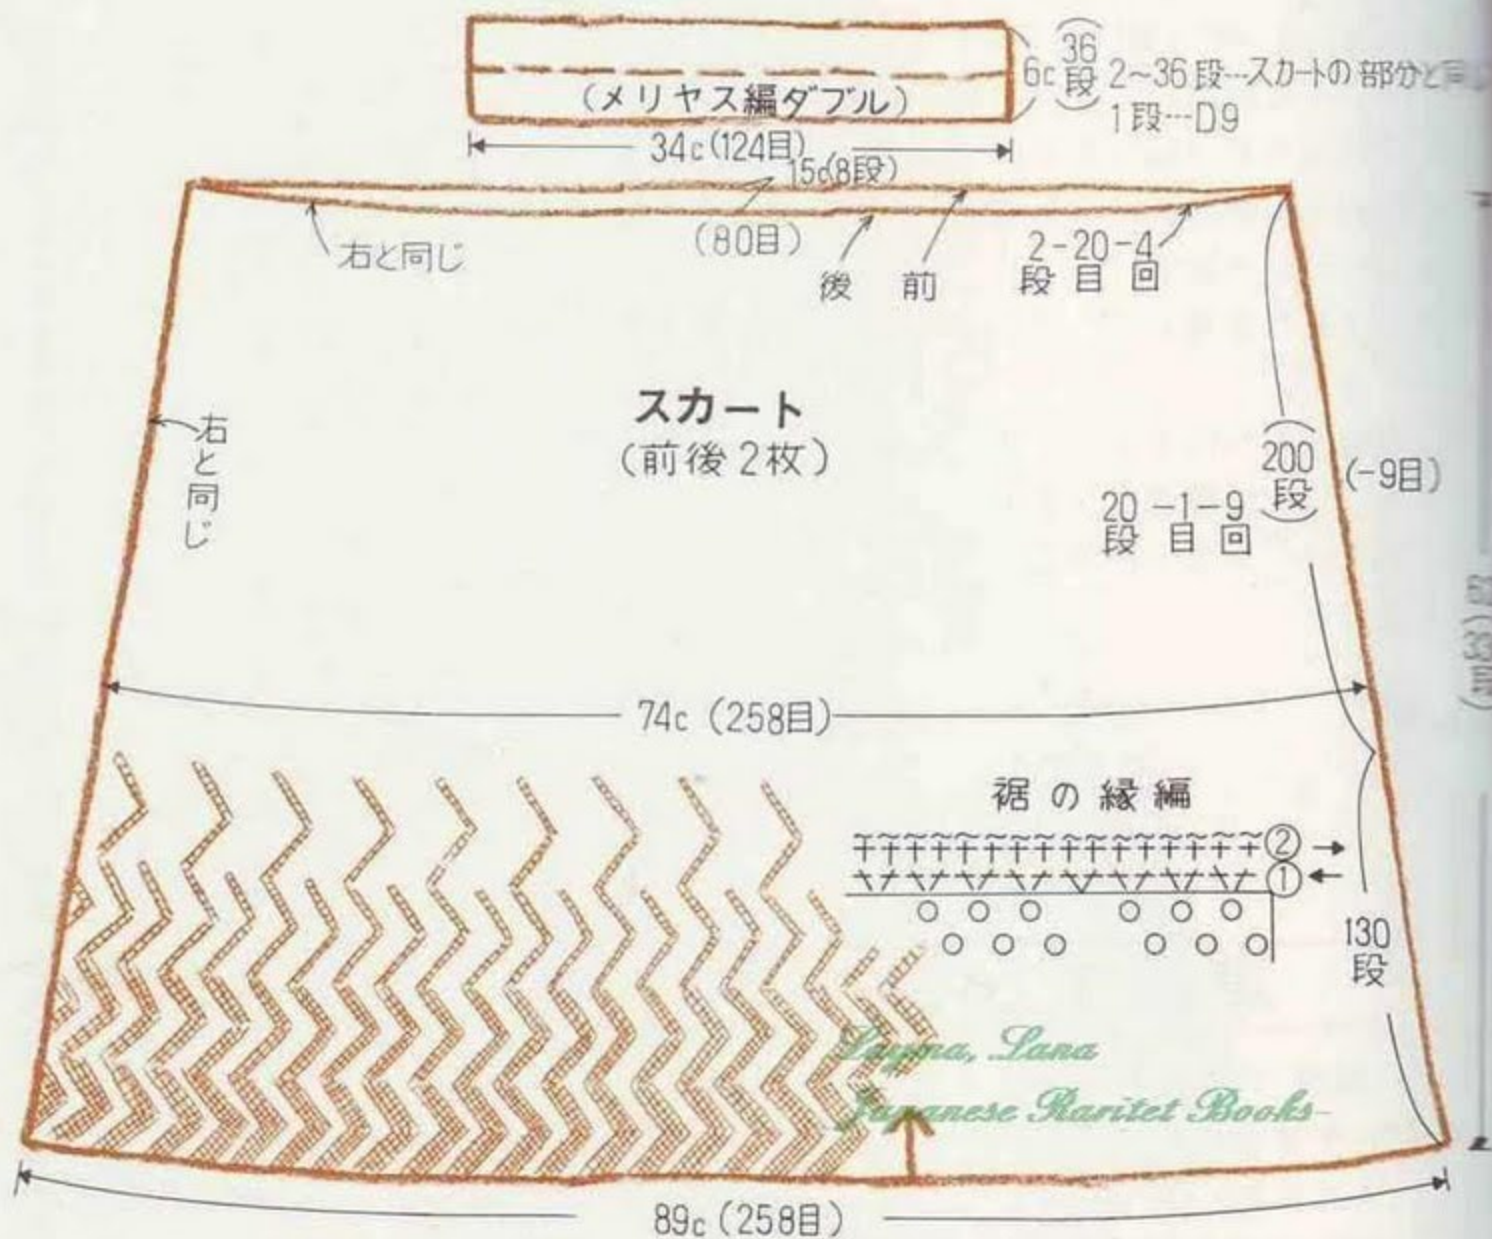 6c(36段)
2~36段…スカートの部分と同
1段…D9
(メリヤス編ダブル)
34c(124目)
15c(8段)
(80目)
右と同じ
後 前
2-20-4
段 目 回
スカート
(前後2枚)
右と同じ
(200段)
(-9目)
20-1-9
段 目 回
74c(258目)
裾の縁編
②
①
130段
Japanese Raritet Books-
89c(258目)